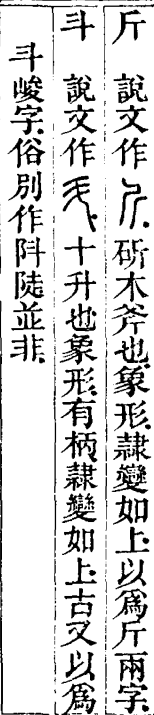 斤 說文作𠂆斫木斧也象形隸變如上以爲斤兩字
斗 說文作𠦄十升也象形有柄隸變如上古又以爲
斗峻字俗別作阧陡並非